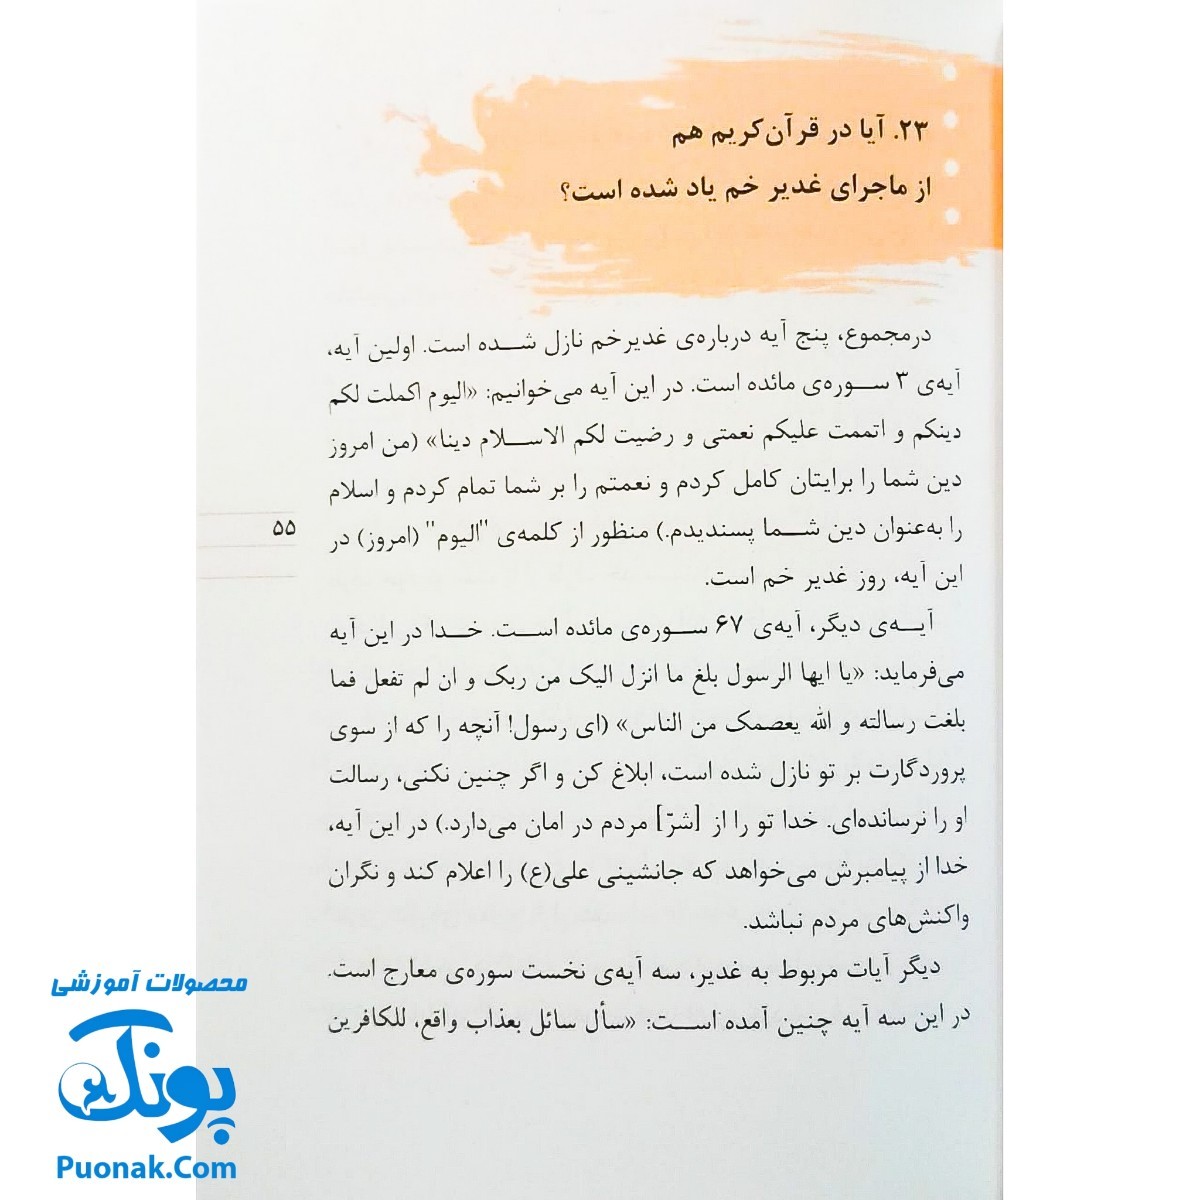 ۲۳. آیا در قرآن‌کریم هم
از ماجرای غدیر خم یاد شده است؟
درمجموع، پنج آیه درباره‌ی غدیرخم نازل شده است. اولین آیه،
آیه‌ی ۳ سوره‌ی مائده است. در این آیه می‌خوانیم: «الیوم اکملت لکم
دینکم و اتممت علیکم نعمتی و رضیت لکم الاسلام دینا» (من امروز
دین شما را برایتان کامل کردم و نعمتم را بر شما تمام کردم و اسلام
را به‌عنوان دین شما پسندیدم.) منظور از کلمه‌ی "الیوم" (امروز) در
این آیه، روز غدیر خم است.
آیه‌ی دیگر، آیه‌ی ۶۷ سوره‌ی مائده است. خدا در این آیه
می‌فرماید: «یا ایها الرسول بلغ ما انزل الیک من ربک و ان لم تفعل فما
بلغت رسالته و الله یعصمک من الناس» (ای رسول! آنچه را که از سوی
پروردگارت بر تو نازل شده است، ابلاغ کن و اگر چنین نکنی، رسالت
او را نرسانده‌ای. خدا تو را از [شرّ] مردم در امان می‌دارد.) در این آیه،
خدا از پیامبرش می‌خواهد که جانشینی علی(ع) را اعلام کند و نگران
واکنش‌های مردم نباشد.
دیگر آیات مربوط به غدیر، سه آیه‌ی نخست سوره‌ی معارج است.
در این سه آیه چنین آمده است: «سأل سائل بعذاب واقع، للکافرین
۵۵
محصولات آموزشی
پونک
Puonak.Com